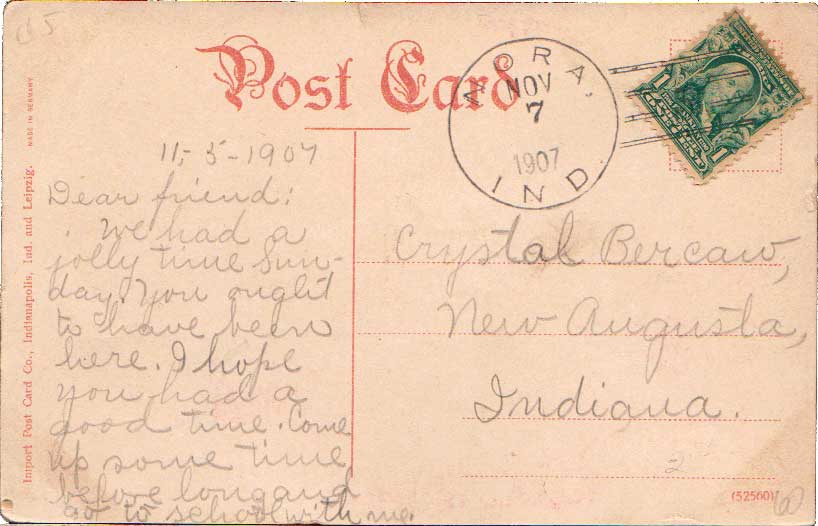 65
Post Card
NORA,
NOV
7
1907
IND.
1
1
Import Post Card Co., Indianapolis, Ind. and Leipzig. MADE IN GERMANY
11-5-1907
Dear friend:
We had a
jolly time Sun-
day. You ought
to have been
here. I hope
you had a
good time. Come
up some time
before long and
go to school with me.
Crystal Bercaw,
New Augusta,
Indiana.
2
(52560)
60